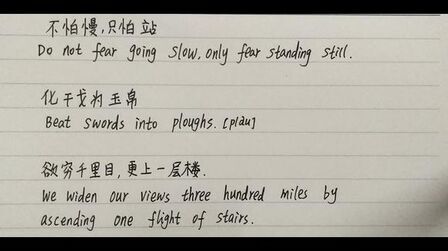 不怕慢,只怕站
Do not fear going slow, only fear standing still.
化干戈为玉帛
Beat swords into ploughs. [plaʊ]
欲穷千里目,更上一层楼.
We widen our views three hundred miles by
ascending one flight of stairs.